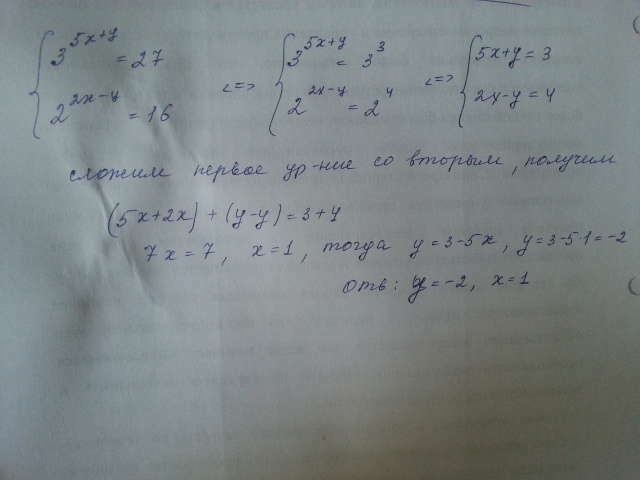 { 3^(5x+y) = 27 <=> { 3^(5x+y) = 3^3 <=> { 5x+y=3
2^(2x-y) = 16 2^(2x-y) = 2^4 2x-y=4
сложим первое ур-ние со вторым, получим
(5x+2x)+(y-y)=3+4
7x=7, x=1, тогда y=3-5x, y=3-5·1=-2
Отв: y=-2, x=1